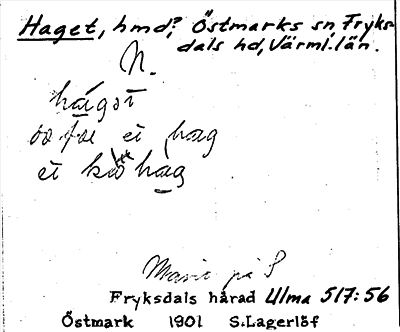 Haget, hmd? Östmarks sn, Fryks-
dals hd, Värml. län.
N.
hágot
et hag
et hag
Marie på S
Fryksdals härad Ulma 517:56
Östmark 1901 S.Lagerlöf